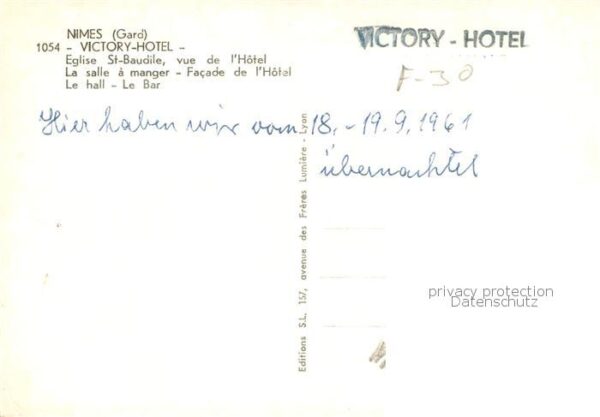 NIMES (Gard)
1054 - VICTORY-HOTEL -
Eglise St-Baudile, vue de l'Hôtel
La salle à manger - Façade de l'Hôtel
Le hall - Le Bar
VICTORY - HOTEL
F-30
Hier haben wir vom 18. - 19.9.1961
übernachtet
Editions S.L. 157, avenue des Frères Lumière - Lyon
privacy protection
Datenschutz